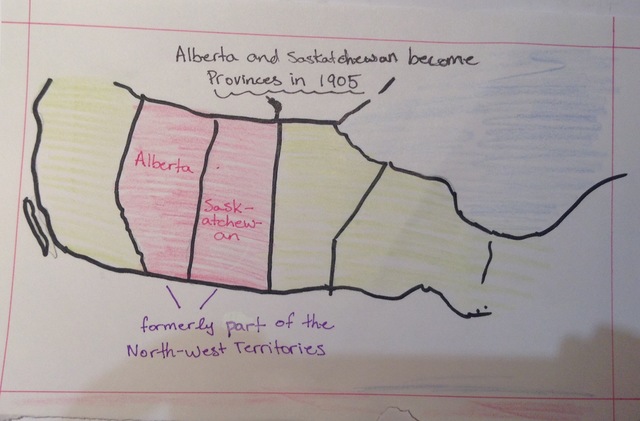 Alberta and Saskatchewan become
Provinces in 1905
Alberta
Sask-
atchew-
an
formerly part of the
North-west Territories